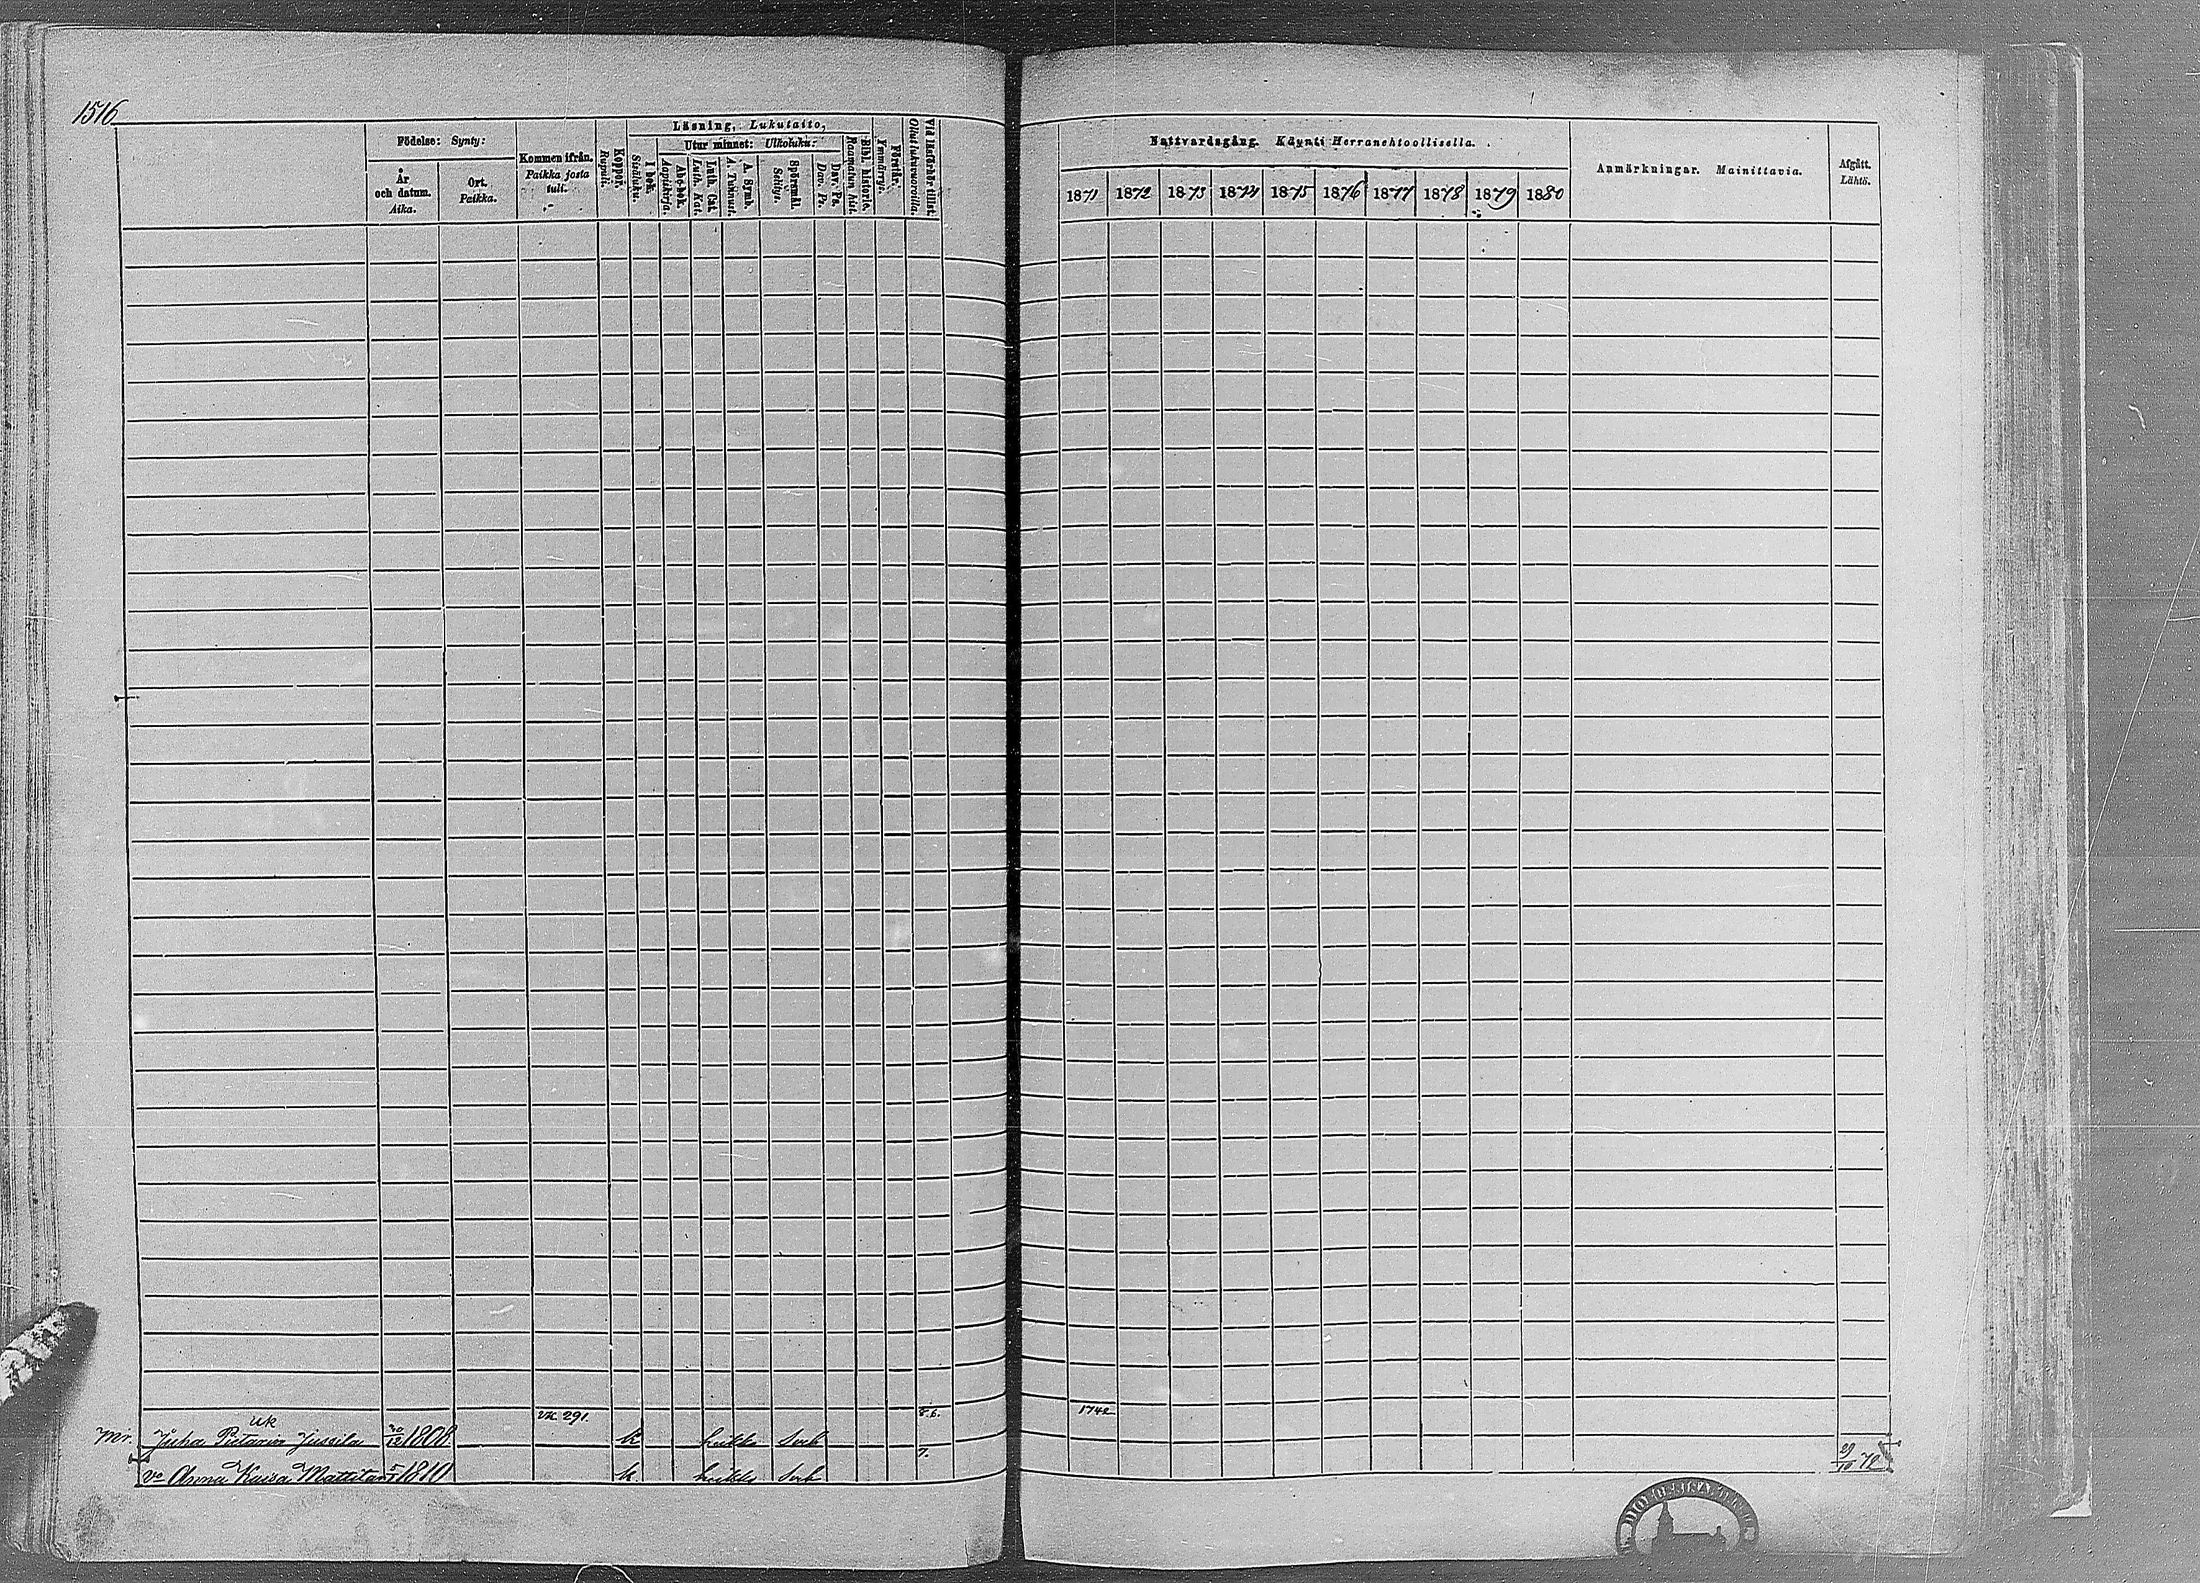 1516
Födelse: Synty:
År och datum. Aika.
Ort. Paikka.
Kommen ifrån. Paikka josta tuli.
Koppor. Rupuli.
Läsning, Lukutaito,
I bok. Sisäluku.
Utur minnet: Ulkoluku:
Abc-bok. Aapiskirja.
Luth. Cat. Luth. Kat.
A. Symb. A. Tunnust.
Spörsmål. Selitys.
Dav. Ps. Dav. Ps.
Bibl. historie. Raamatun hist.
Förstår. Ymmärrys.
Vid läsförhör tillst. Ollut lukuwuoroilla.
Nattvardsgång. Käynti Herranehtoollisella.
1871 1872 1873 1874 1875 1876 1877 1878 1879 1880
Anmärkningar. Mainittavia.
Afgått. Lähtö.
uk 291. 8.6. 1742
Juha Jussila 1808
7. 29/10 72
vo Anna Kaisa 1810